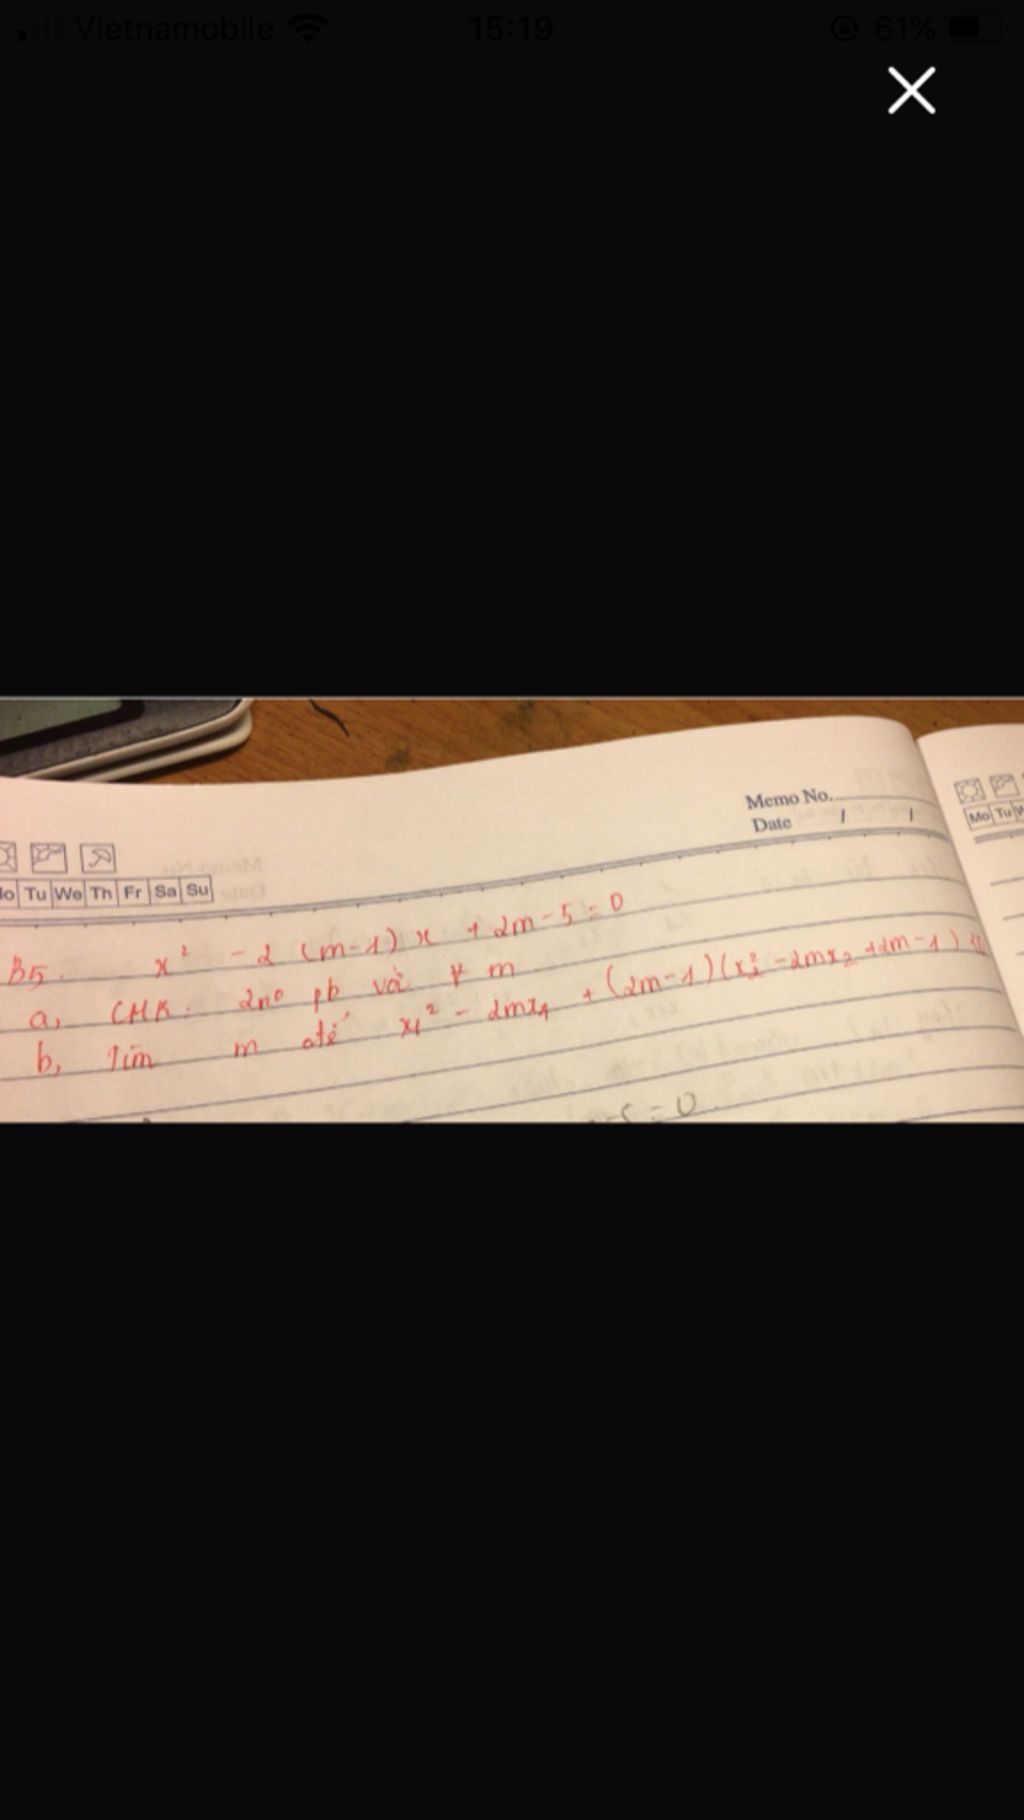 Vietnamobile 15:19 61%
Memo No.
Date / /
Tu We Th Fr Sa Su
Mo Tu
B5. x² - 2 (m-1) x + 2m - 5 = 0
a, CMR: 2no pb với ∀ m
b, Tìm m để x₁² - 2mx₁ + (2m-1)(x₂² - 2mx₂ + 2m - 1)
= 0